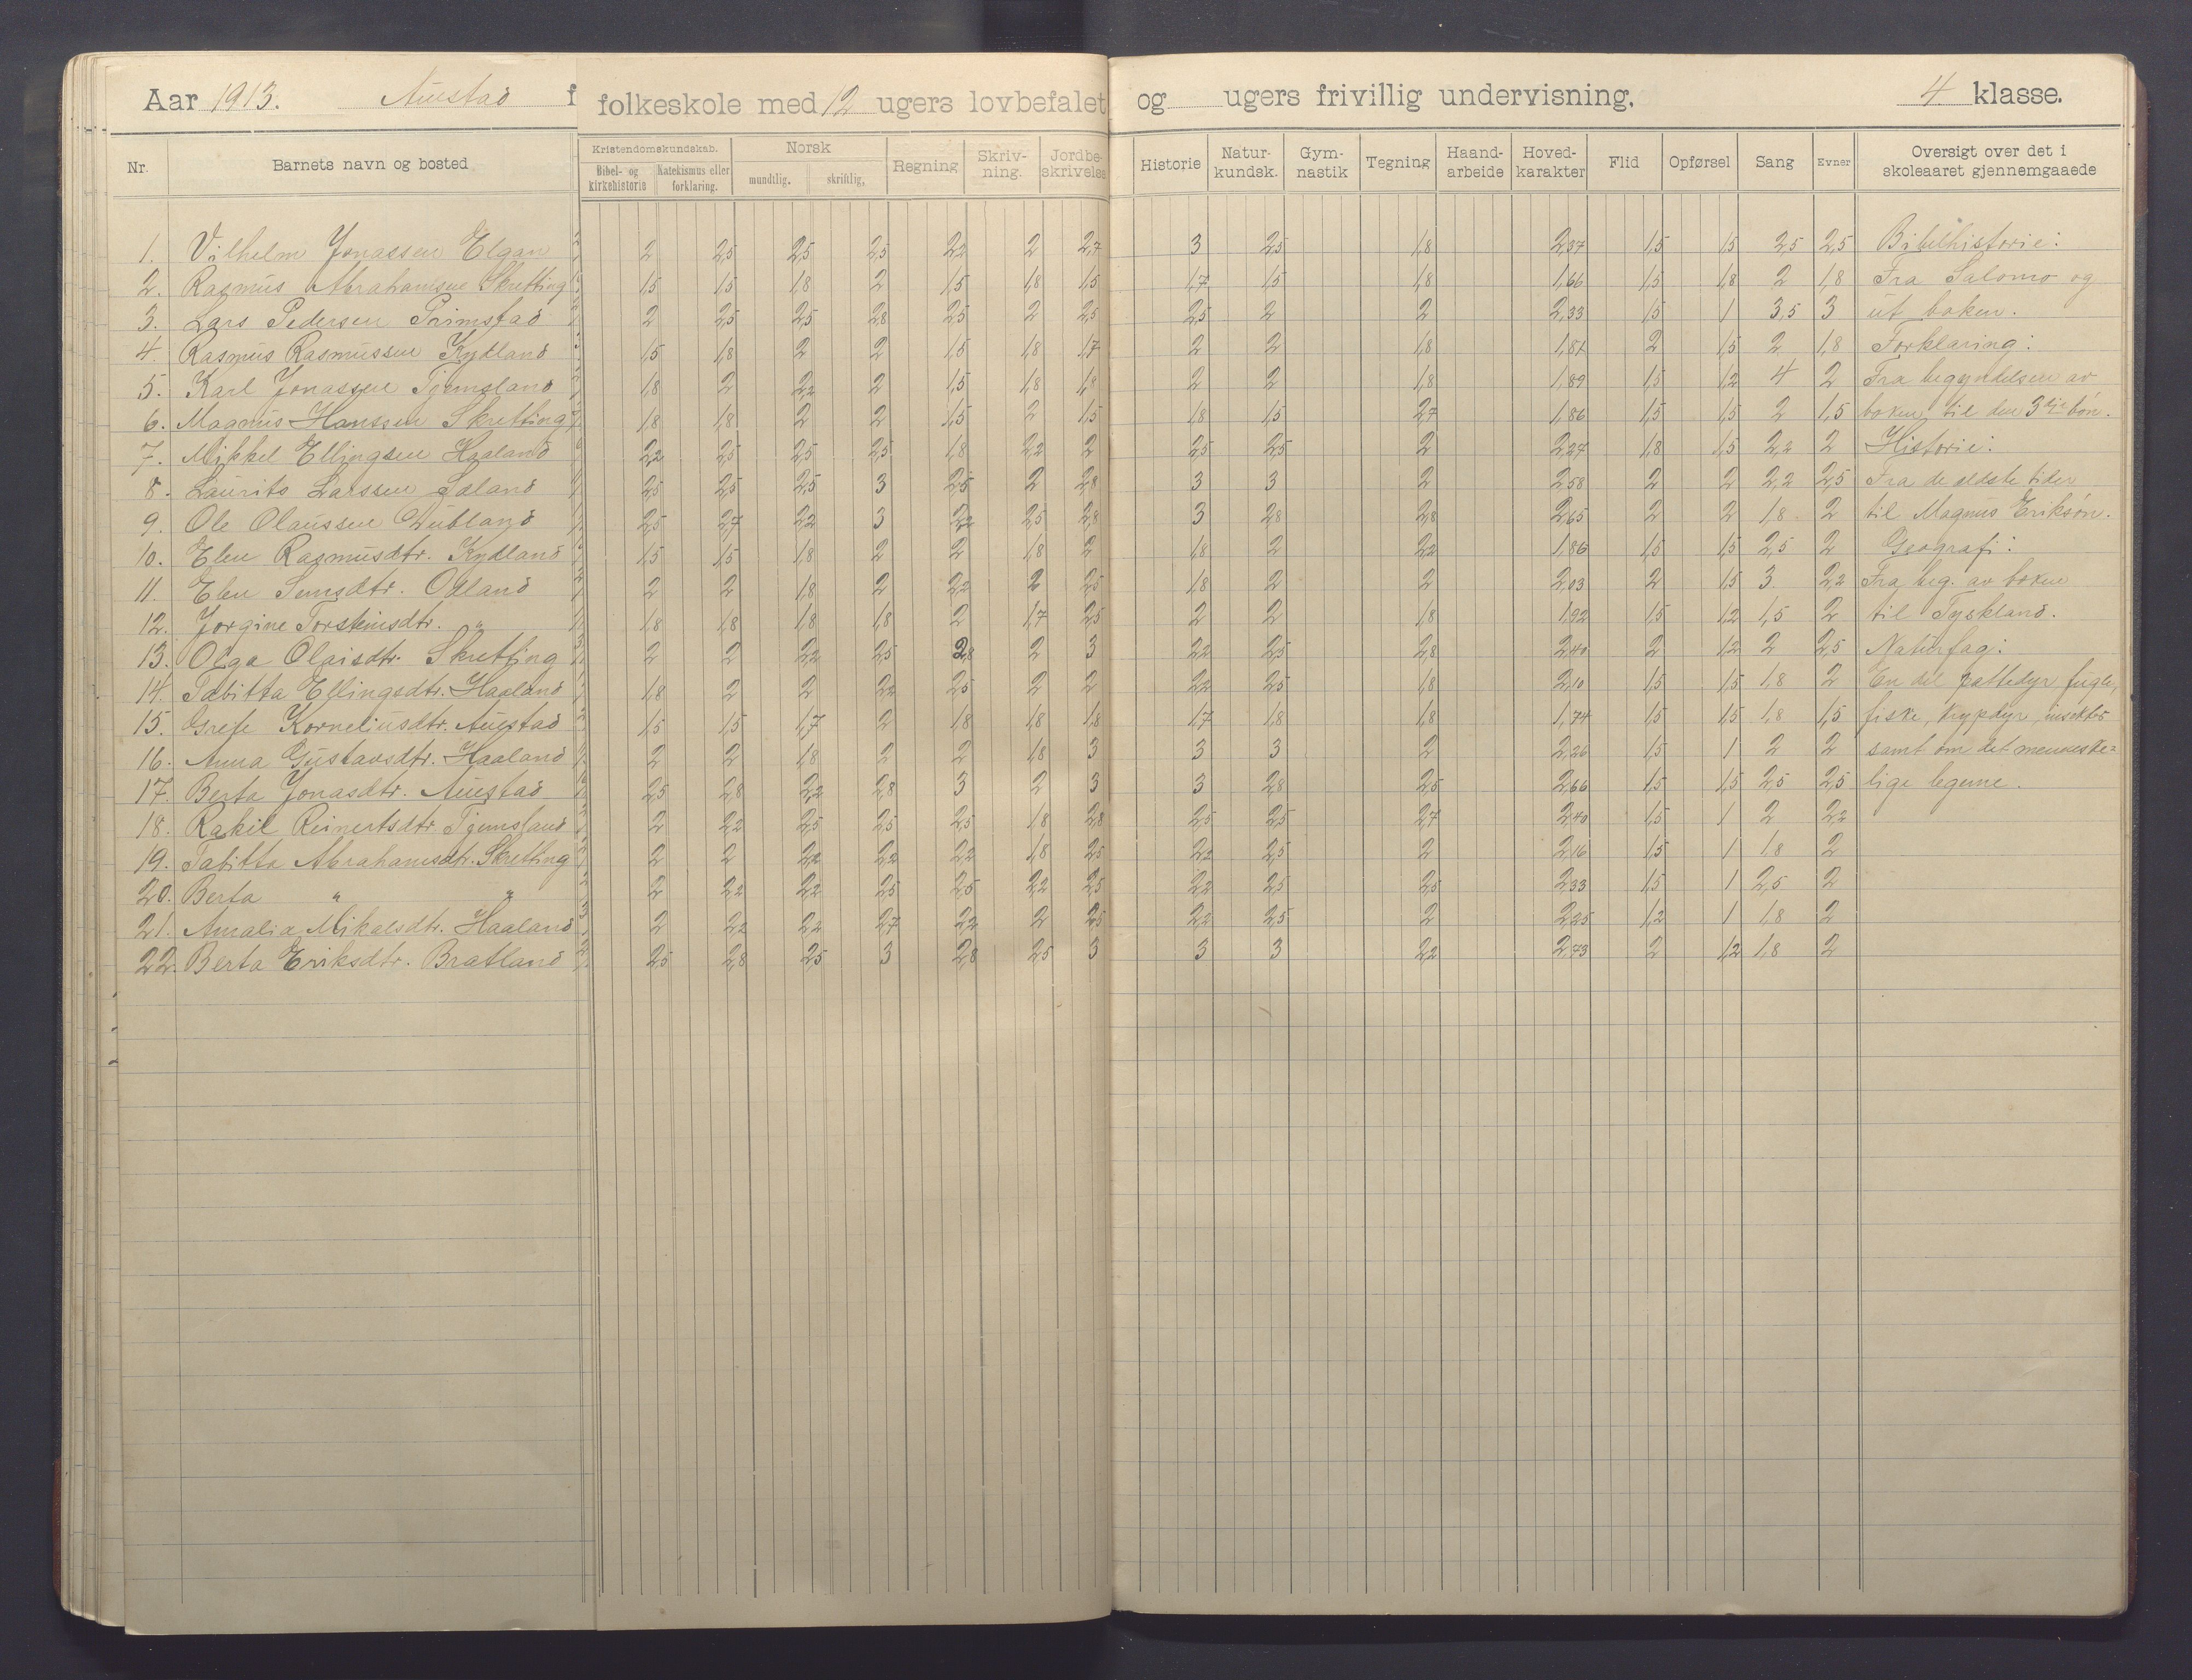 Aar 1913. Auestad folkeskole med 12 ugers lovbefalet og ugers frivillig undervisning. 4 klasse.
Nr. Barnets navn og bosted Kristendomskundskab. Bibel- og kirkehistorie Katekismus eller forklaring. Norsk mundtlig. skriftlig. Regning Skriv-ning. Jordbe-skrivelse Historie Natur-kundsk. Gym-nastik Tegning Haand-arbeide Hoved-karakter Flid Opførsel Sang Evner Oversigt over det i skoleaaret gjennemgaaede
1. Vilhelm Jonassen Elgan 2 2,5 2,5 2,5 2,2 2 2,7 3 2,5 1,8 2,37 1,5 1,5 2,5 2,5 Bibelhistorie:
2. Rasmus Abrahamsen Skretting 1,5 1,5 1,8 2 1,5 1,8 1,5 1,7 1,5 1,8 1,66 1,5 1,8 2 1,8 Fra Salomo og
3. Lars Pedersen Primstad 2 2,5 2,5 2,8 2,5 2 2,5 2,5 2 2 2,33 1,5 1 3,5 3 ut boken.
4. Rasmus Rasmussen Kydland 1,5 1,8 2 2 1,5 1,8 1,7 2 2 1,8 1,81 2 1,5 2 1,8 Forklaring:
5. Karl Jonassen Tjemsland 1,8 2 2,2 2 1,5 1,8 1,8 2 2 1,8 1,89 1,5 1,2 4 2 Fra begyndelsen av
6. Magnus Hanssen Skretting 1,8 1,8 2 2 1,5 2 1,5 1,8 1,5 2,7 1,86 1,5 1,5 2 1,5 boken til den 3dje bøn.
7. Mikkel Ellingsen Haaland 2,2 2,5 2,5 2,5 1,8 2,2 2 2,5 2,5 2 2,27 1,8 1,5 2,2 2 Historie:
8. Laurits Larssen 2,5 2,5 2,5 3 2,5 2 2,8 3 3 2 2,58 2 2 2,2 2,5 Fra de ældste tider
9. Ole Olaussen Dubland 2,5 2,7 2,2 3 2,2 2,5 2,8 3 2,8 2,8 2,65 2 2 1,8 2 til Magnus Eriksøn.
10. Elen Rasmusdtr. Kydland 1,5 1,5 1,8 2 2 1,8 2 1,8 2 2,2 1,86 1,5 1,5 2,5 2 Geografi:
11. Elen Sunsdtr. Odland 2 2 1,8 2 2,2 2 2,5 1,8 2 2 2,03 2 1,5 3 2,2 Fra beg. av boken
12. Jorgine Torsteinsdtr. " 1,8 1,8 1,8 1,8 2 1,7 2,5 2 2 1,8 1,92 1,5 1,2 1,5 2 til Tyskland.
13. Olga Olaisdtr. Skretting 2 2 2,2 2,5 2,8 2 3 2,2 2,5 2,8 2,40 2 1,2 2 2,5 Naturfag:
14. Tabitta Ellingsdtr. Haaland 1,8 2 2 2,2 2,5 2 2 2,2 2,5 1,8 2,10 1,5 1,5 1,8 2 En del pattedyr, fugle,
15. Grete Korneliusdtr. Auestad 1,5 1,5 1,7 2 1,8 1,8 1,8 1,7 1,8 1,8 1,74 1,5 1,5 1,8 1,5 fiske, krypdyr, insekter
16. Anna Gustavsdtr. Haaland 2 2 1,8 2 2 1,8 3 3 3 2 2,26 1,5 1 2 2 samt om det menneske=
17. Berta Jonasdtr. Auestad 2,5 2,8 2,2 2,8 3 2 3 3 2,8 2,5 2,66 1,5 1,5 2,5 2,5 lige legeme.
18. Rakel Reinertsdtr. Tjemsland 2 2,2 2,5 2,5 2,5 1,8 2,8 2,5 2,5 2,7 2,40 1,5 1 2 2,2
19. Tabitta Abrahamsdtr. Skretting 2 2 2,2 2,2 2,2 1,8 2,5 2,2 2,5 2 2,16 1,5 1 1,8 2
20. Berta " " 2 2,2 2,2 2,5 2,5 2,2 2,5 2,2 2,5 2,5 2,33 1,5 1 2,5 2
21. Amalia Mikalsdtr. Haaland 2 2,2 2,2 2,7 2,2 2 2,5 2,2 2,5 2 2,25 1,2 1 1,8 2
22. Berta Eriksdtr. Bratland 2,5 2,8 2,5 3 2,8 2,5 3 3 3 2,2 2,73 2 1,2 1,8 2